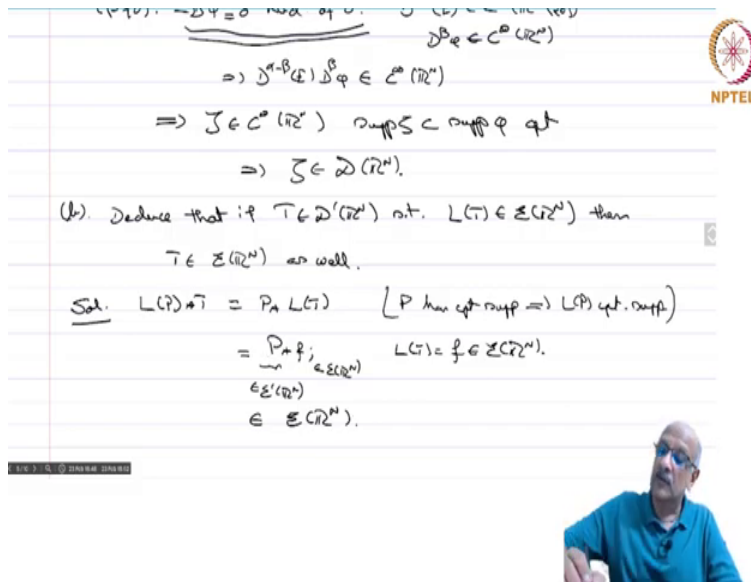 D^β φ ∈ C^∞(ℝ^N)
⇒ D^{α-β}(E) D^β φ ∈ C^∞(ℝ^N)
NPTEL
⇒ ζ ∈ C^∞(ℝ^N) supp ζ ⊂ supp φ cpt
⇒ ζ ∈ D(ℝ^N).
(b). Deduce that if T ∈ D'(ℝ^N) s.t. L(T) ∈ E(ℝ^N) then
T ∈ E(ℝ^N) as well.
Sol. L(P)*T = P * L(T) [P has cpt supp ⇒ L(P) cpt. supp)
= P * f; L(T) = f ∈ E(ℝ^N).
∈ E'(ℝ^N) ∈ E(ℝ^N)
∈ E(ℝ^N).